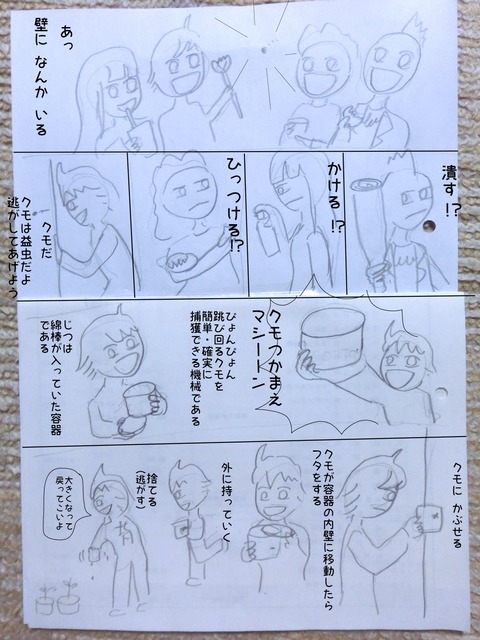 あっ
壁に なんか いる
潰す!?
かける!?
ひっつける!?
クモだ
クモは益虫だよ
逃がしてあげよう
クモつかまえ
マシーン
ぴょんぴょん
跳び回るクモを
簡単・確実に
捕獲できる機械である
じつは
綿棒が入っていた容器
である
クモに かぶせる
クモが容器の内壁に移動したら
フタをする
外に持っていく
捨てる
(逃がす)
大きくなって
戻ってこいよ